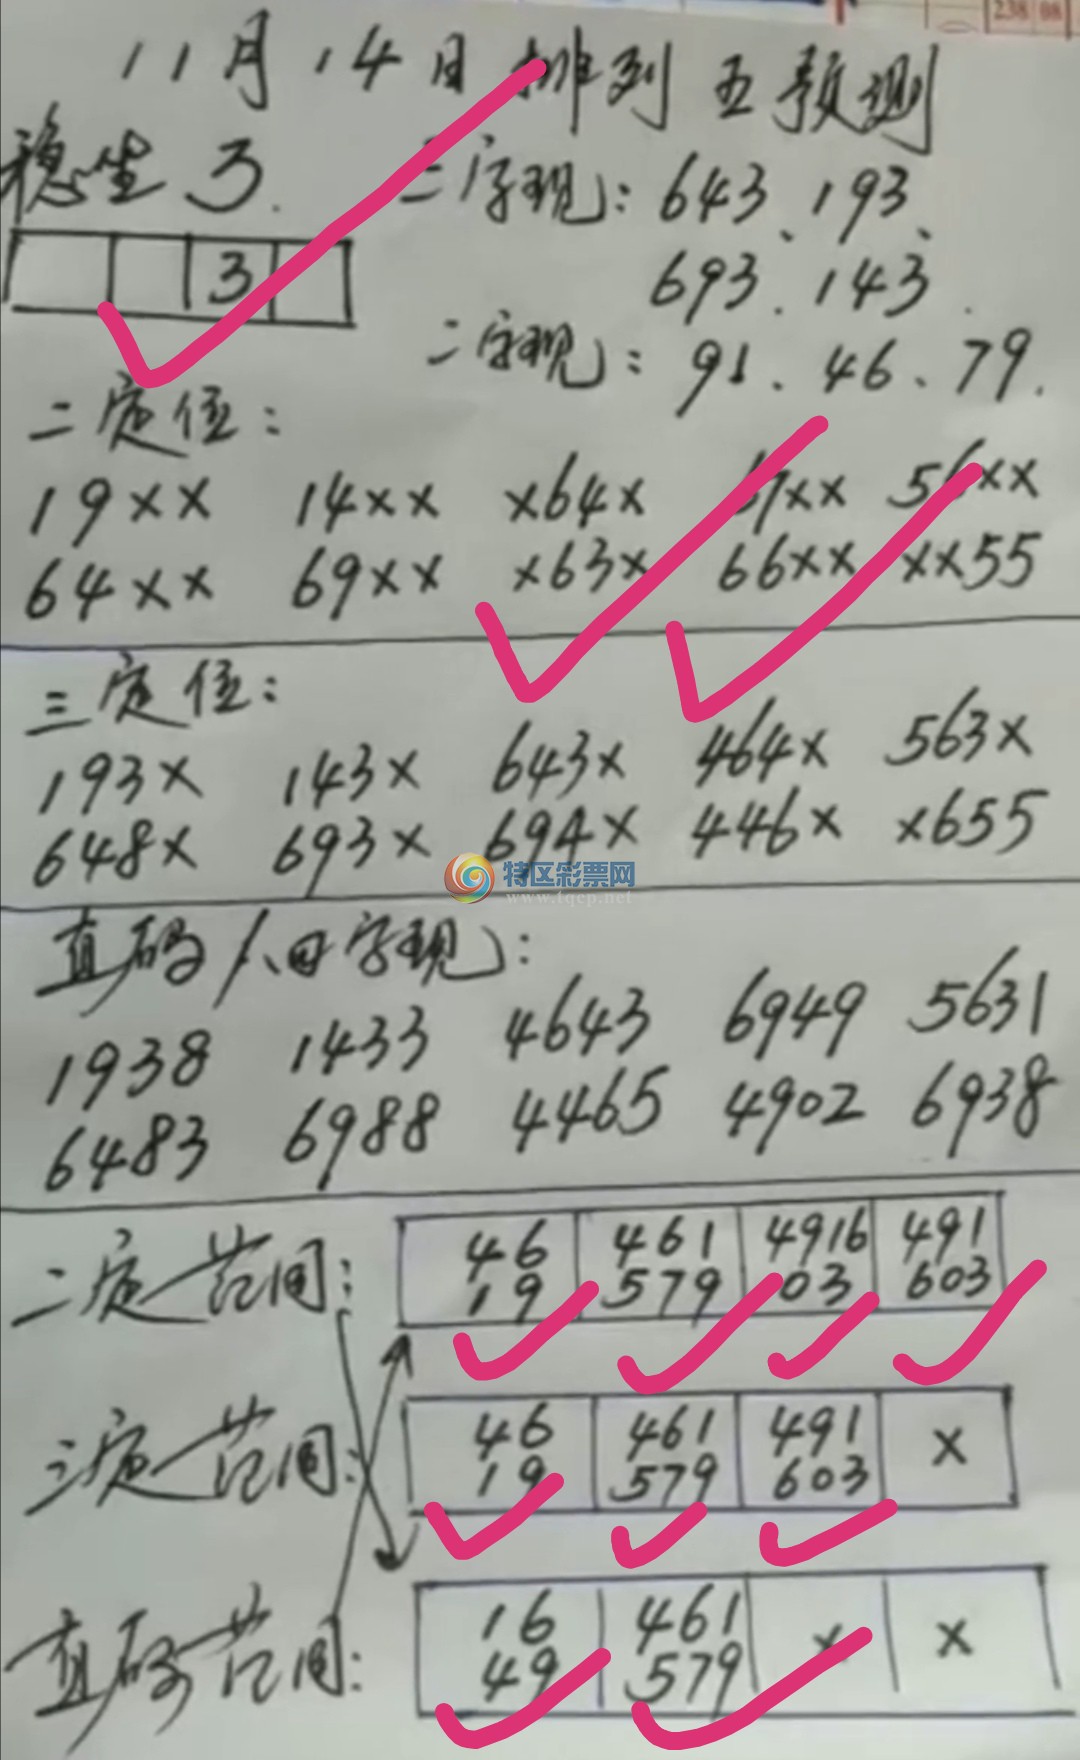 238 08
11月14日排列五预测
稳坐3.
三字现：643、193、
3
693、143.
二字现：91、46、79.
二定位：
19×× 14×× ×64× 67×× 56××
64×× 69×× ×63× 66×× ××55
三定位：
193× 143× 643× 464× 563×
648× 693× 694× 446× ×655
特区彩票网
www.tqcp.net
直码八四字现：
1938 1433 4643 6949 5631
6483 6988 4465 4902 6938
二定范围：
46 461 4916 491
19 579 03 603
三定范围：
46 461 491 ×
19 579 603
直码范围：
16 461 × ×
49 579